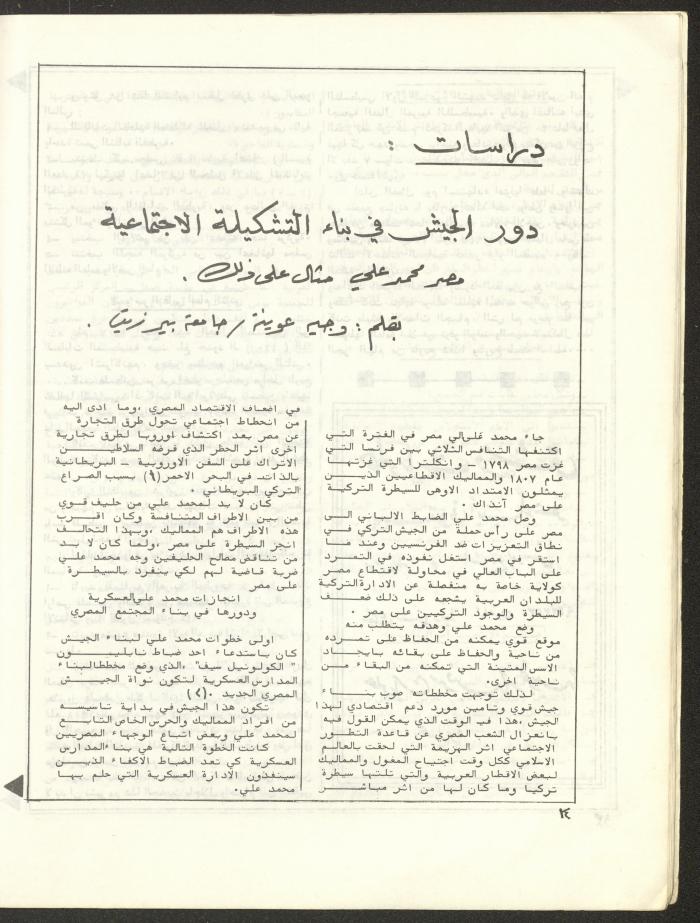 دراسات :
دور الجيش في بناء التشكيلة الاجتماعية
مصر محمد علي مثال على ذلك .
بقلم : وجيه عوينة / جامعة بيرزيت .
جاء محمد علي الى مصر في الفترة التي
اكتنفها التنافس الثلاثي بين فرنسا التي
غزت مصر ١٧٩٨ - وانكلترا التي غزتها
عام ١٨٠٧ والمماليك الاقطاعيين الذين
يمثلون الامتداد الاوهى للسيطرة التركية
على مصر آنذاك .
وصل محمد علي الضابط الالباني الى
مصر على رأس حملة من الجيش التركي في
نطاق التعزيزات ضد الفرنسيين وعند ما
استقر في مصر استغل نفوذه في التمرد
على الباب العالي في محاولة لاقتطاع مصر
كولاية خاصة به منفصلة عن الادارة التركية
للبلدان العربية يشجعه على ذلك ضعف
السيطرة والوجود التركيين على مصر .
وضع محمد علي وهدفه يتطلب منه
موقع قوي يمكنه من الحفاظ على تمرده
من ناحية والحفاظ على بقائه بايجاد
الاسس المتينة التي تمكنه من البقاء من
ناحية اخرى.
لذلك توجهت مخططاته صوب بناء
جيش قوي وتامين مورد دعم اقتصادي لهذا
الجيش ،هذا في الوقت الذي يمكن القول فيه
بانعزال الشعب المصري عن قاعدة التطور
الاجتماعي اثر الهزيمة التي لحقت بالعالم
الاسلامي ككل وقت اجتياح المغول والمماليك
لبعض الاقطار العربية والتي تلتها سيطرة
تركيا وما كان لها من اثر مباشر
في اضعاف الاقتصاد المصري ،وما ادى اليه
من انحطاط اجتماعي تحول طرق التجارة
عن مصر بعد اكتشاف اوروبا لطرق تجارية
اخرى اثر الحظر الذي فرضه السلاطين
الاتراك على السفن الاوروبية - البريطانية
بالذات- في البحر الاحمر(٩) بسبب الصراع
التركي البريطاني .
كان لا بد لـمحمد علي من حليف قوي
من بين الاطراف المتنافسة وكان اقرب
هذه الاطراف هم المماليك ، وبهذا التحالف
انجز السيطرة على مصر ،ولما كان لا بد
من تناقض مصالح الحليفين وجه محمد علي
ضربة قاضية لهم لكي ينفرد بالسيطرة
على مصر
انجازات محمد علي العسكرية
ودورها في بناء المجتمع المصري
اولى خطوات محمد علي لبناء الجيش
كان باستدعاء احد ضباط نابليون
" الكولونيل سيف" ،الذي وضع مخططا لبناء
المدارس العسكرية لتكون نواة الجيش
المصري الجديد .(٢)
تكون هذا الجيش في بداية تاسيسه
من افراد المماليك والحرس الخاص التابع
لمحمد علي وبعض اتباع الوجهاء المصريين
كانت الخطوة التالية هي بناء المدارس
العسكرية كي تعد الضباط الاكفاء الذين
سينفذون الادارة العسكرية التي حلم بها
محمد علي.
٢٤